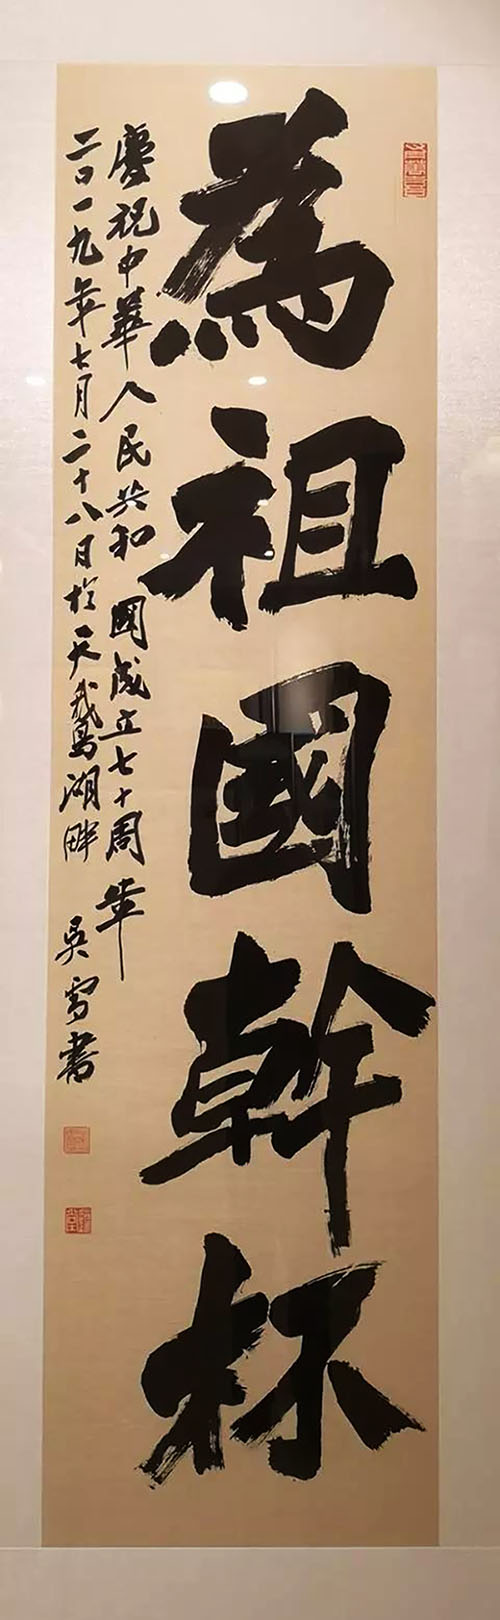 為祖國幹杯
慶祝中華人民共和國成立七十周年
二〇一九年七月二十八日於天鵝湖畔 吳雪書